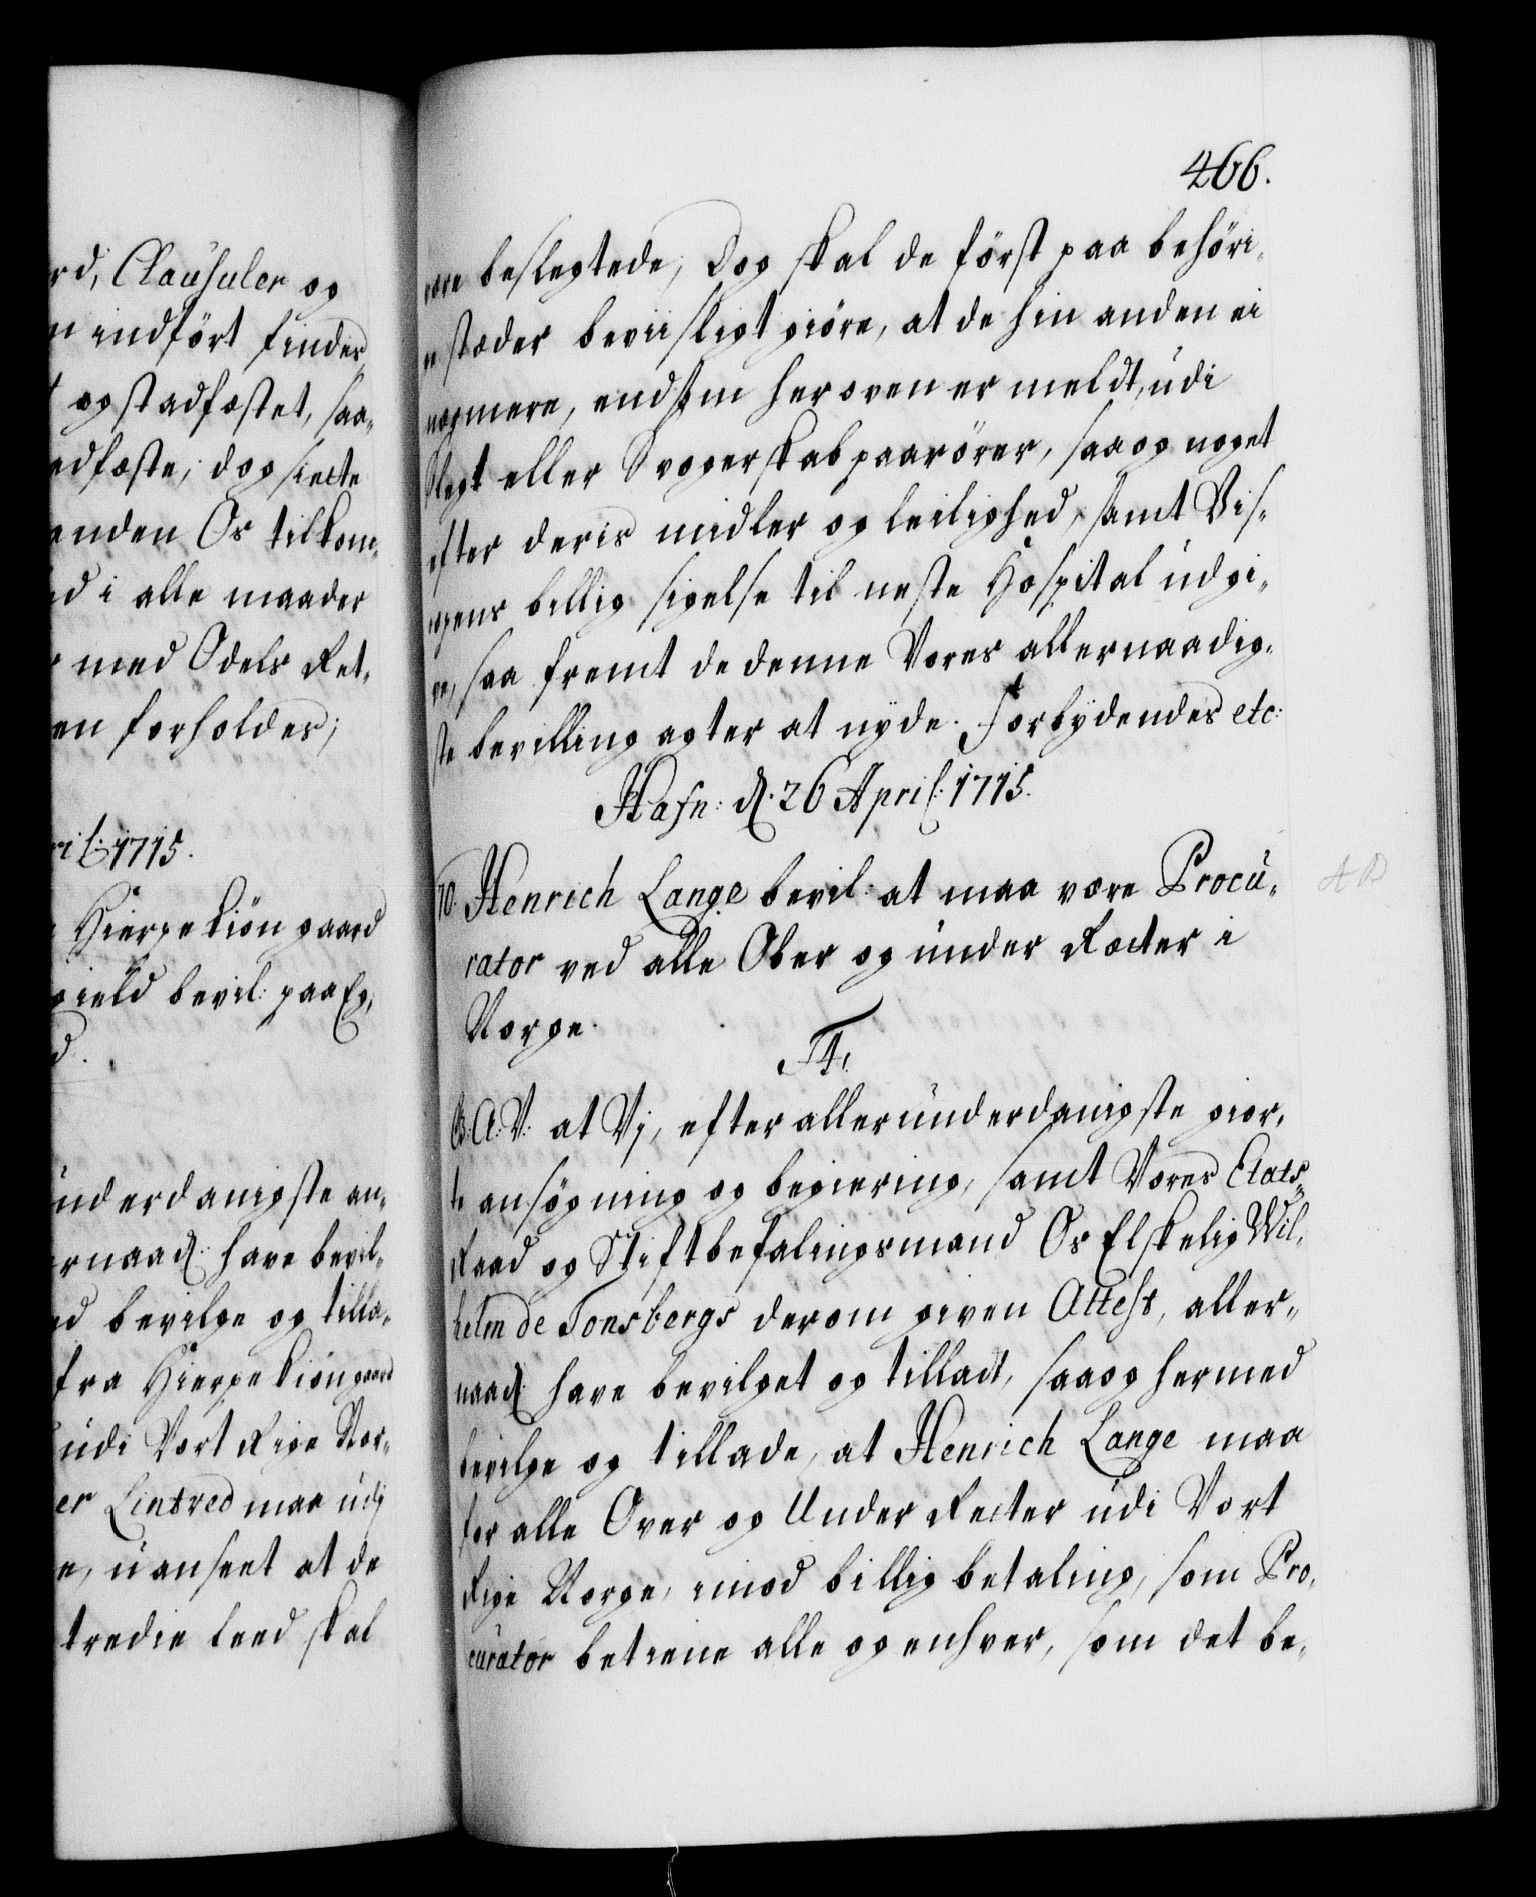 rd, Clausuler og
n indført finder
og stadfæstet, saa„
adfæste; dog siette
anden Os tilkom„
ed i alle maader
med Odels Ret„
en forholder;
ril: 1715.
Hierpekiøn gaard
gield bevil: paa Eg„
d.
underdanigste an„
ernaad: have bevil„
ed bevilge og tilla„
fra Hierpekiøngaard
udi Vort Rige Nor„
er Lintved maa udj
e, uanseet at de
tredie leed skal
466.
ere beslegtede, Dog skal de först paa behöri„
e stæder beviisligt giöre, at de hin anden ei
nogmere, end som her oven er meldt, udi
Slegt eller Svogerskab paarörer, saa og noget
efter deris midler og leilighed, samt Vis„
ogens billig sigelse til neste Hospital udgi„
ve, saa fremt de denne Vores allernaadig„
ste bevilling agter at nyde. Forbydendes etc:
Hafn: d. 26 April: 1715.
70. Henrich Lange bevil: at maa være Procu„
rator ved alle Ober og under Rætter i
Norge.
F4.
G: A: V: at Vj, efter allerunderdanigste gior„
te ansögning og begiering, samt Vores Etats„
Raad og Stiftbefalingsmand Os Elskelig Wil„
helm de Tonsbergs derom given Attest, aller„
naad: have bevilget og tilladt, saa og hermed
bevilge og tillade, at Henrich Lange maa
for alle Over og Under Retter udi Vort
Rige Norge, imod billig betaling, som Pro„
curator betiene alle og enhver, som det be„